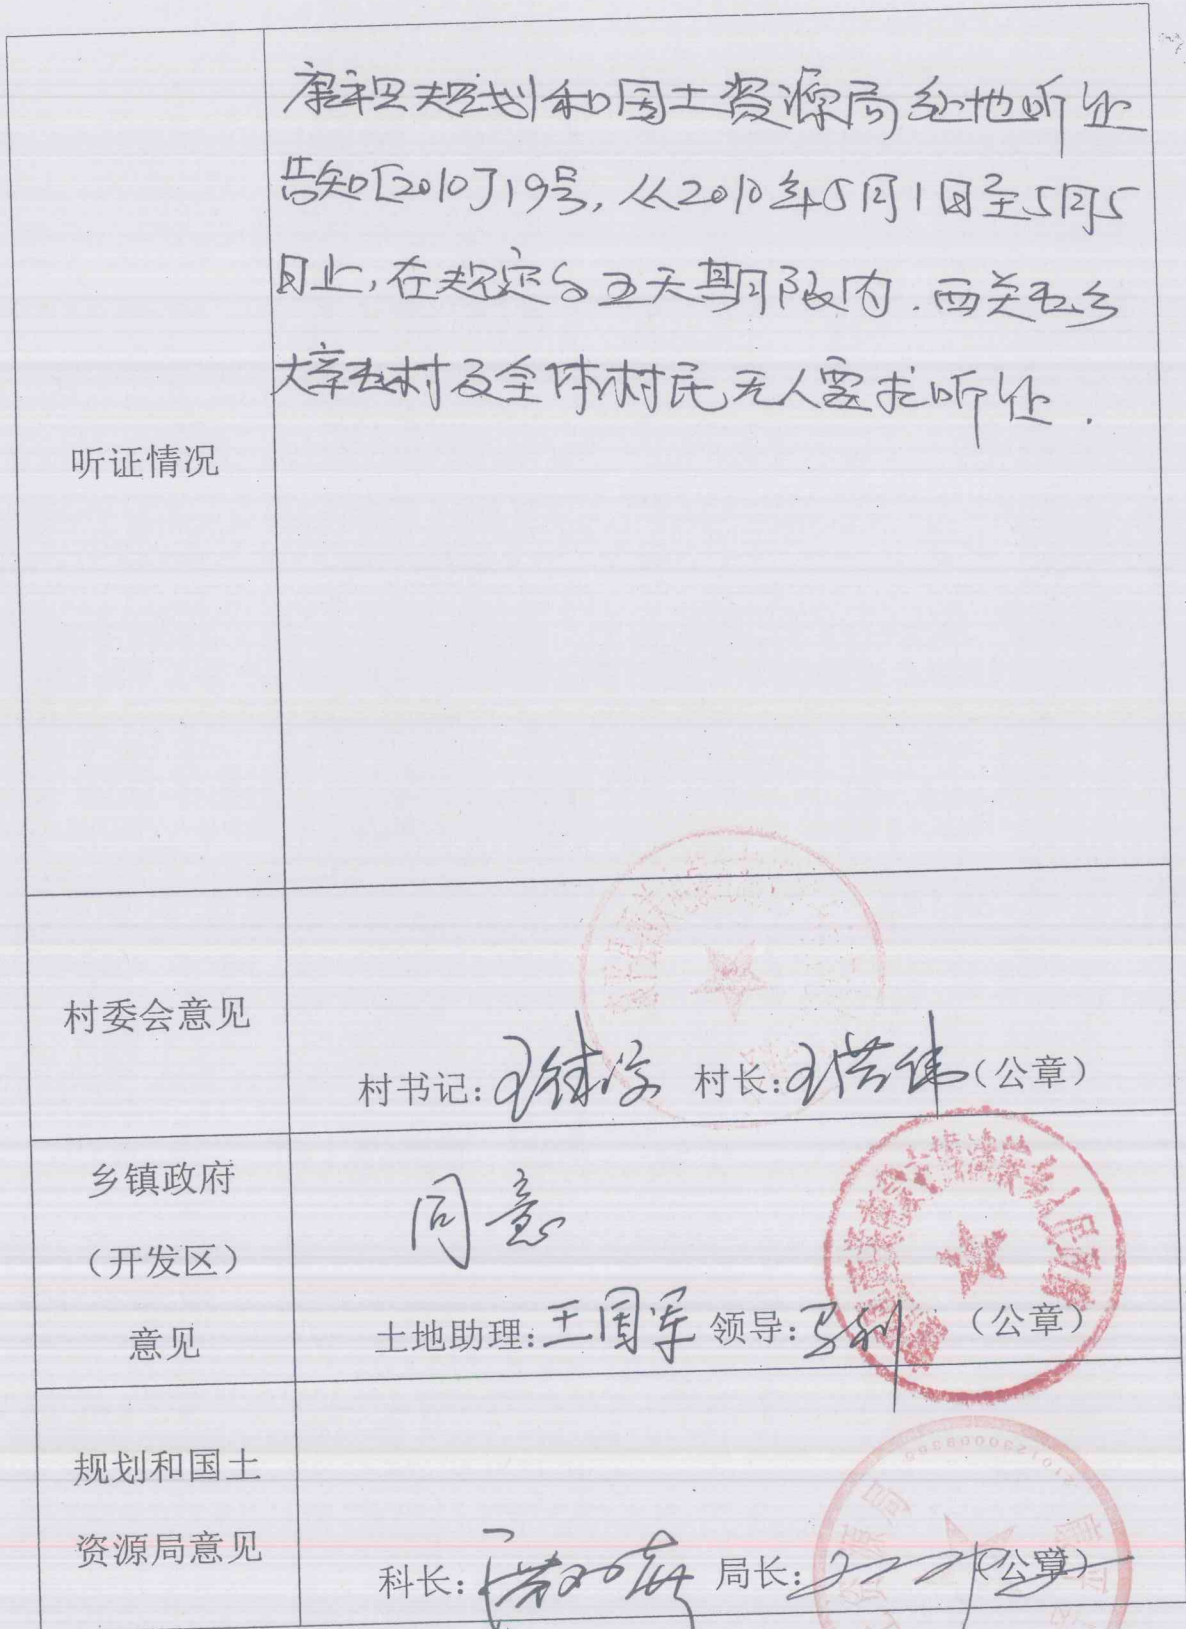 康平县规划和国土资源局征地听证
告知[2010]19号,从2010年5月1日至5月5
日止,在规定的五天期限内.西关屯乡
大辛屯村及全体村民无人要求听证.
听证情况
村委会意见
村书记: 村长:王洪伟(公章)
乡镇政府
(开发区)
意见
同意
土地助理:王国军 领导:马利 (公章)
规划和国土
资源局意见
科长: 局长: (公章)
2101230009380